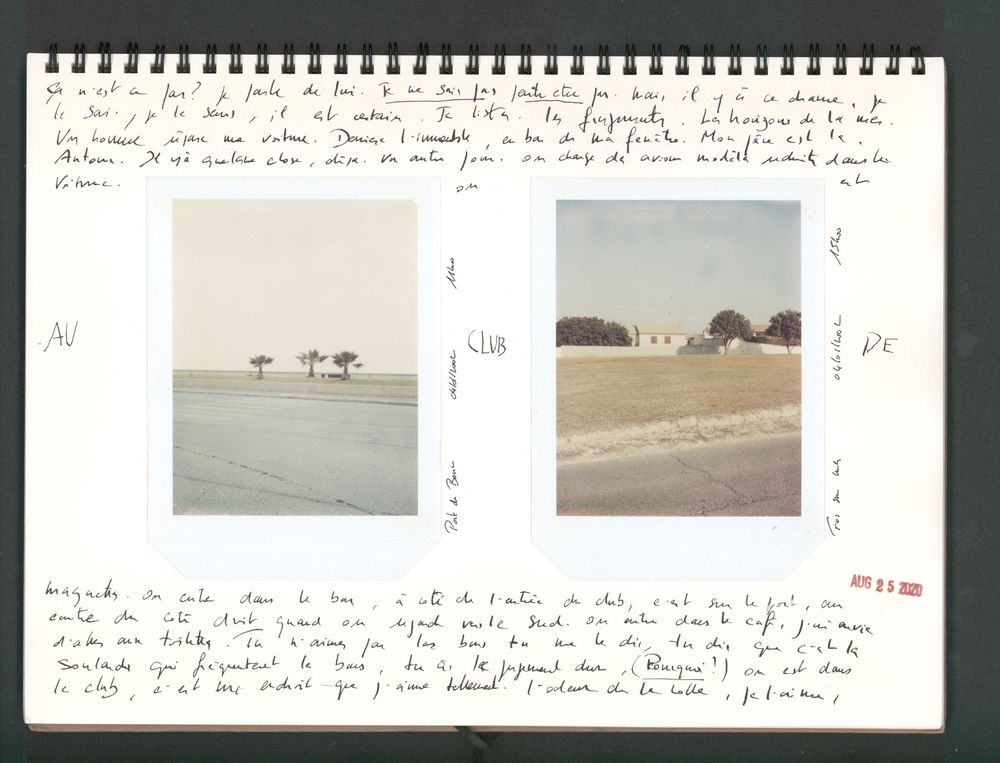 Ça n'est ça pas? je parle de lui. Je ne sais pas peut être pas. mais, il y a ce charme, je
le sais, je le sens, il est certain. Je liste. Les fragments. Les horizons de la mer.
Un homme répare une voiture. Derrière l'immeuble, en bas de ma fenêtre. Mon père est là.
Antoine. Il y a quelque chose, déjà. Un autre jour. on charge des avions modèle réduit dans les
Voiture. on est
AU CLUB DE
Port de Bouc 04/01/2002 11h00
Fos sur mer 04/01/2002 15h00
AUG 25 2020
magnette. on entre dans le bar, à côté de l'entrée du club, c'est sur le port, au
centre du côté droit quand on regarde vers le Sud. on entre dans le café, j'ai envie
d'aller aux toilettes. Tu n'aimes pas les bars tu me le dis, tu dis que c'est la
Soulards qui fréquentent le bars, tu as le jugement dur, (Pourquoi?) on est dans
le club, c'est un endroit que j'aime tellement. l'odeur de la colle, je l'aime,